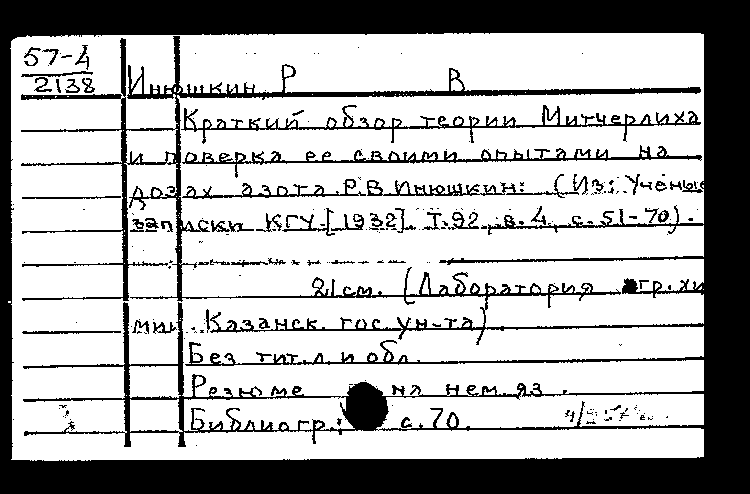 57-4
2138
Инюшкин, Р В
Краткий обзор теории Митчерлиха
и поверка ее своими опытами на
дозах азота. Р.В. Инюшкин: (Из: Учёные
записки КГУ. [1932]. Т.92, в. 4, с. 51-70).
21 см. (Лаборатория агр. хи
мии. Казанск. гос. ун-та).
Без тит. л. и обл.
Резюме на нем. яз.
Библиогр.: с. 70.